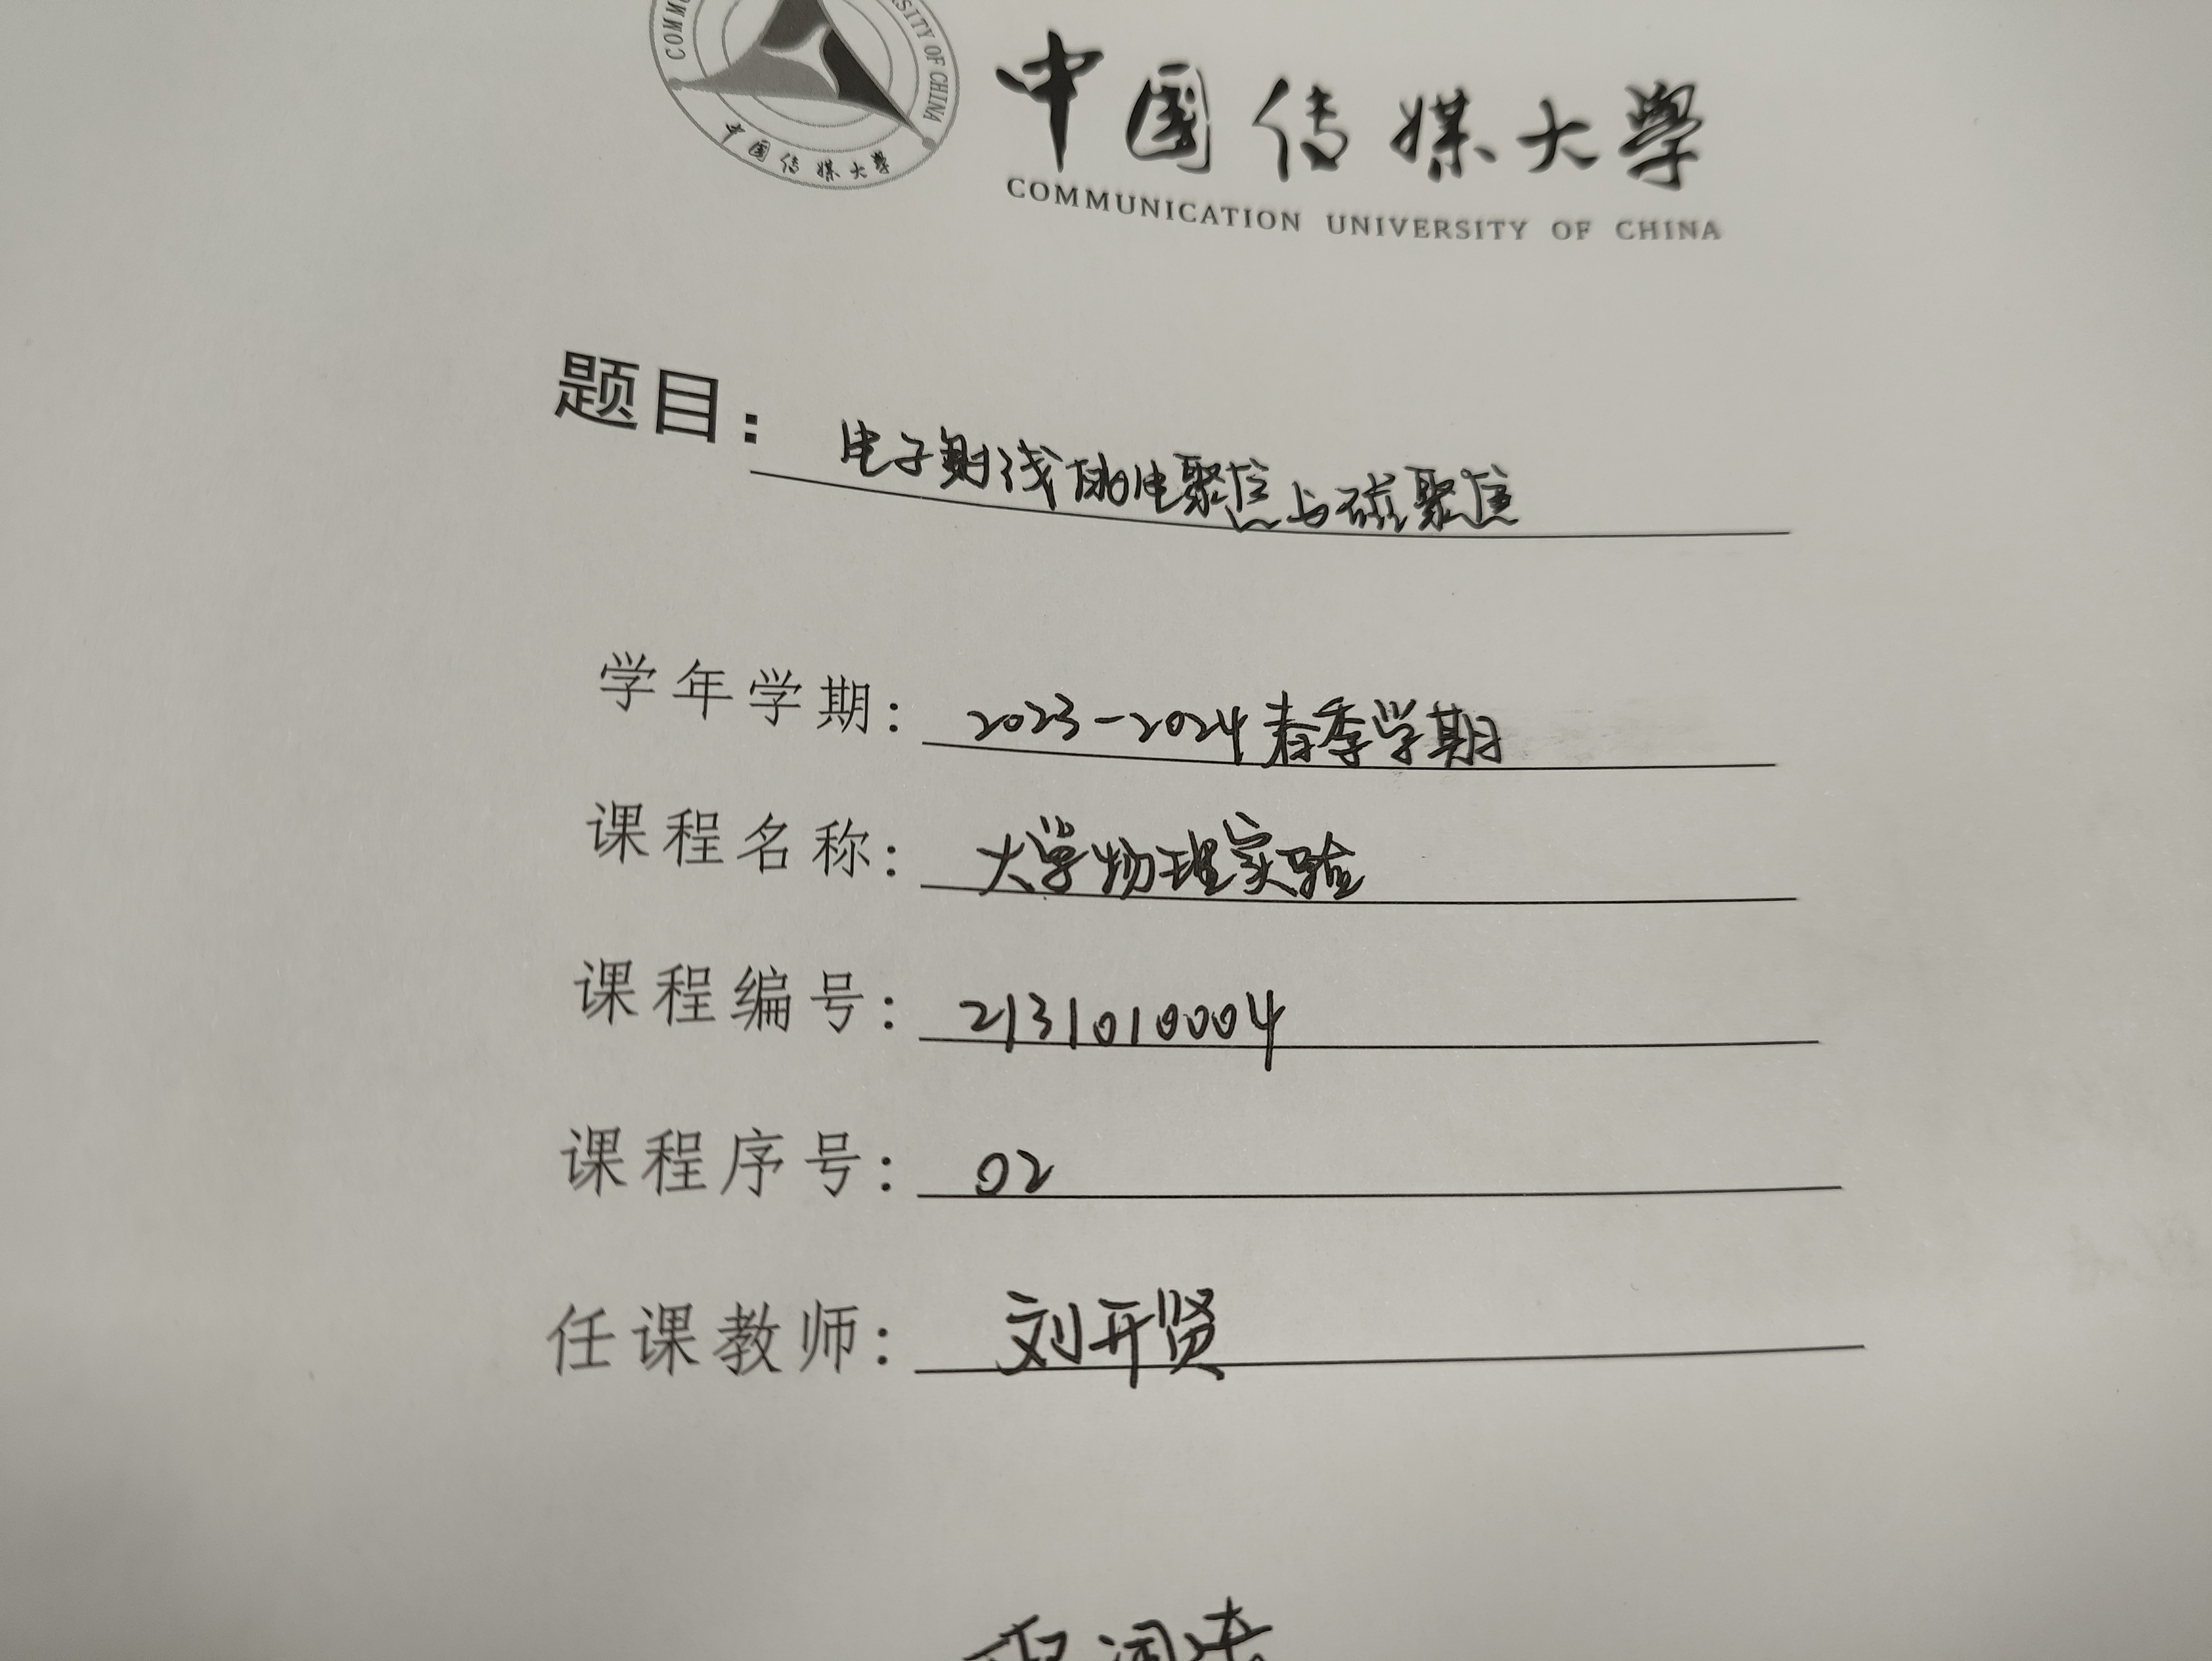 COMMU
SITY OF CHINA
中国传媒大学
中国传媒大学
COMMUNICATION UNIVERSITY OF CHINA
题目：电子射线的电聚焦与磁聚焦
学年学期：2023-2024春季学期
课程名称：大学物理实验
课程编号：2131010004
课程序号：02
任课教师：刘开贤